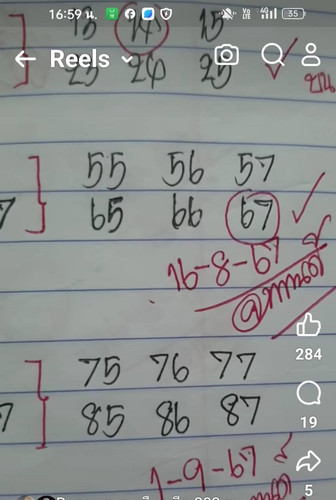 16:59 น.
35
13 14 15
Reels
23 24 25
55 56 57
7 65 66 67
16-8-67
284
75 76 77
19
7 85 86 87
1-9-67
5